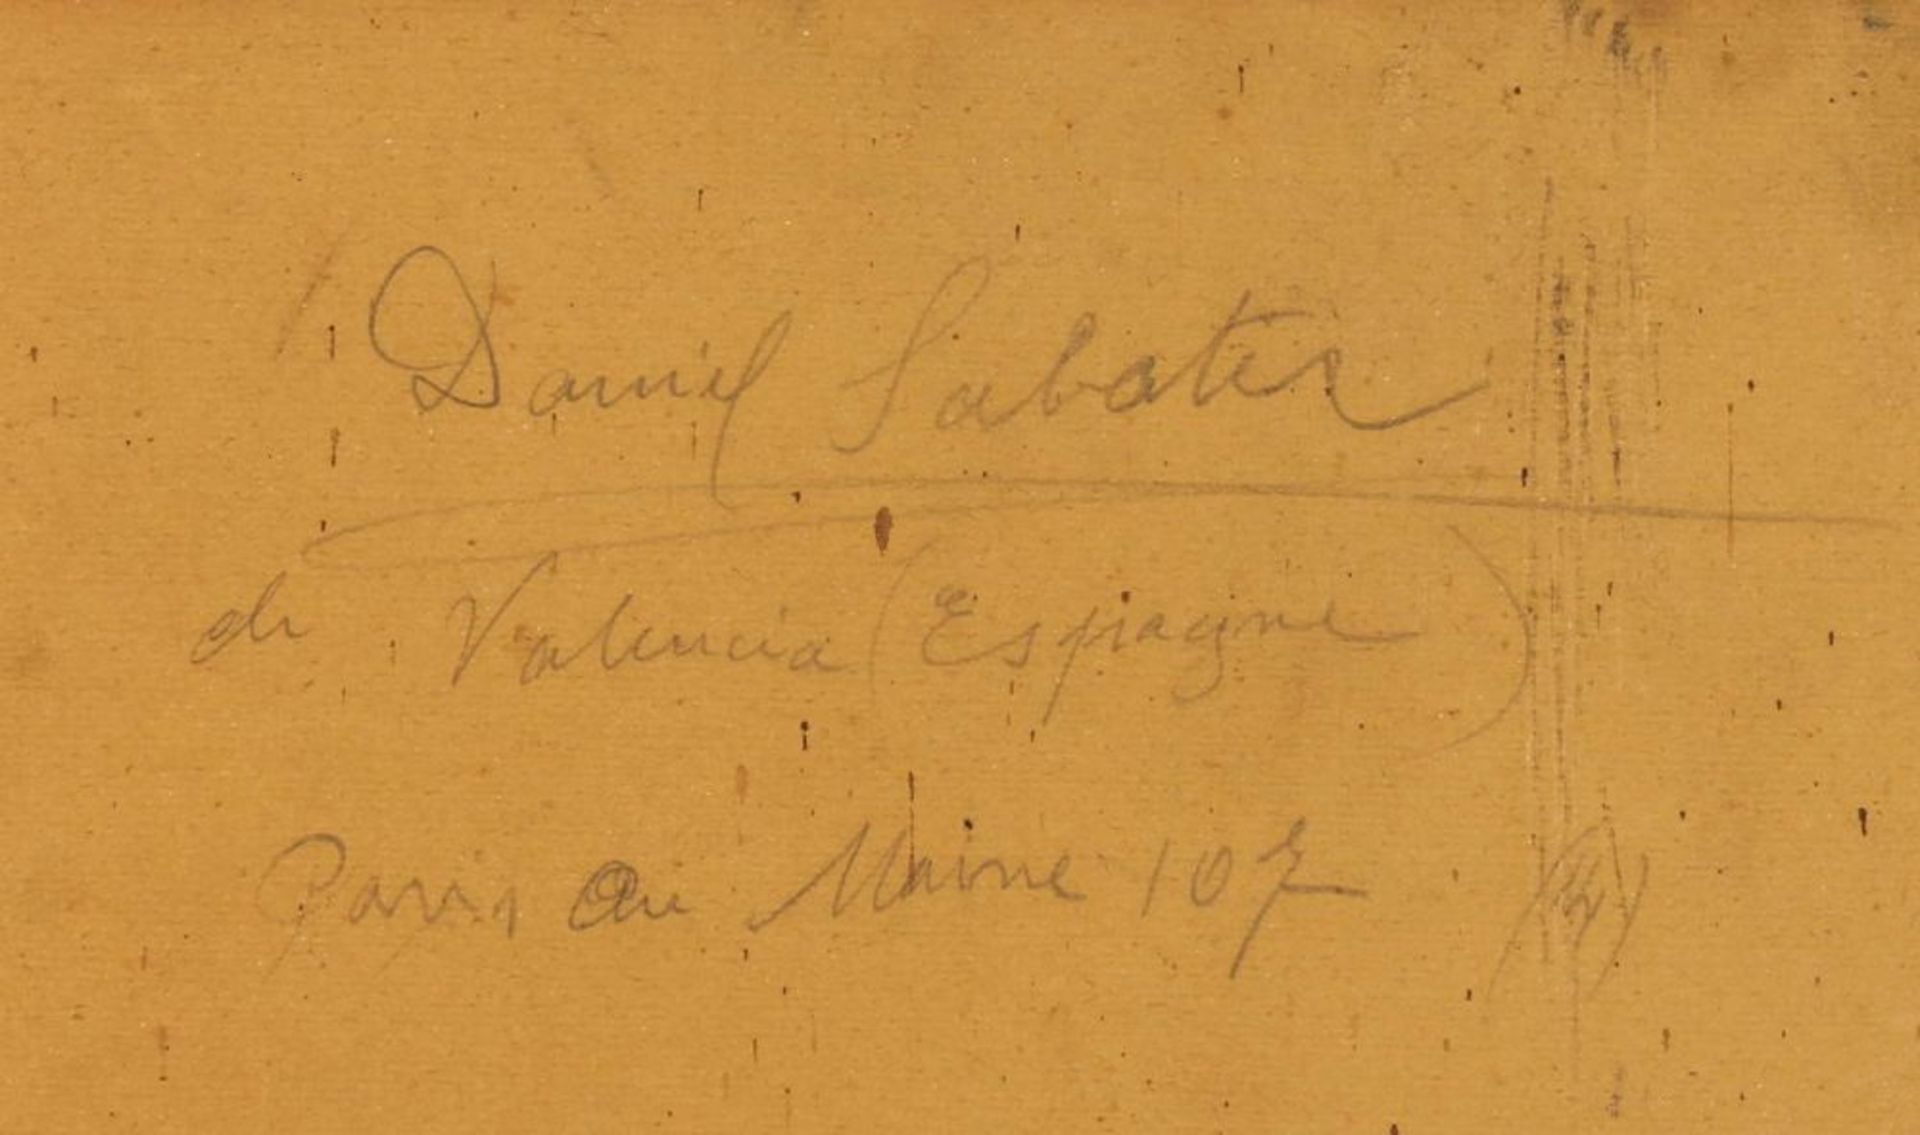 Daniel Sabater
de Valencia (Espagne)
Paris Au Maine 107